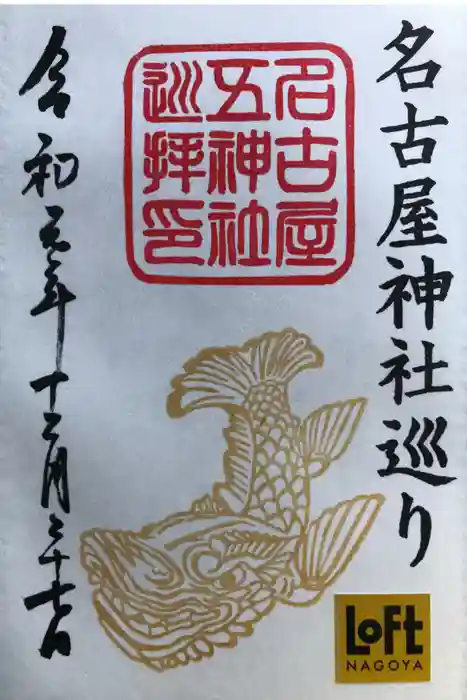 名古屋神社巡り
名古屋
五神社
巡拝印
令和元年十二月二十七日
Loft
NAGOYA